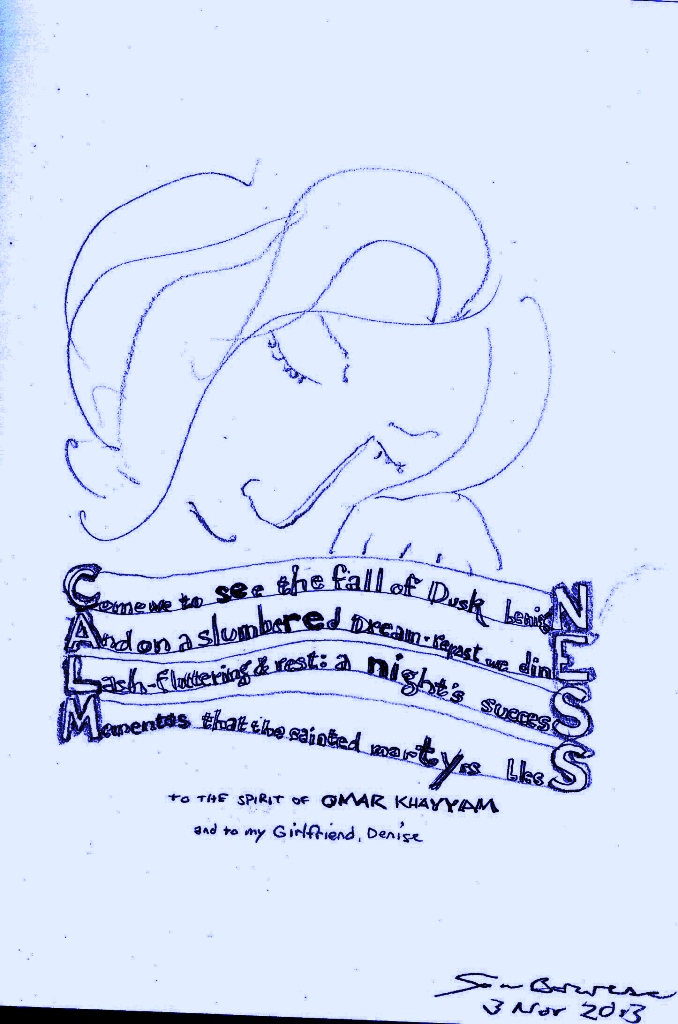 Come we to see the fall of Dusk benigN
And on a slumbered Dream-repast we dinE
Lash-fluttering & rest: a night's succesS
Momentos that the sainted martyrs blesS
TO THE SPIRIT OF OMAR KHAYYAM
and to my Girlfriend, Denise
3 Nov 2013